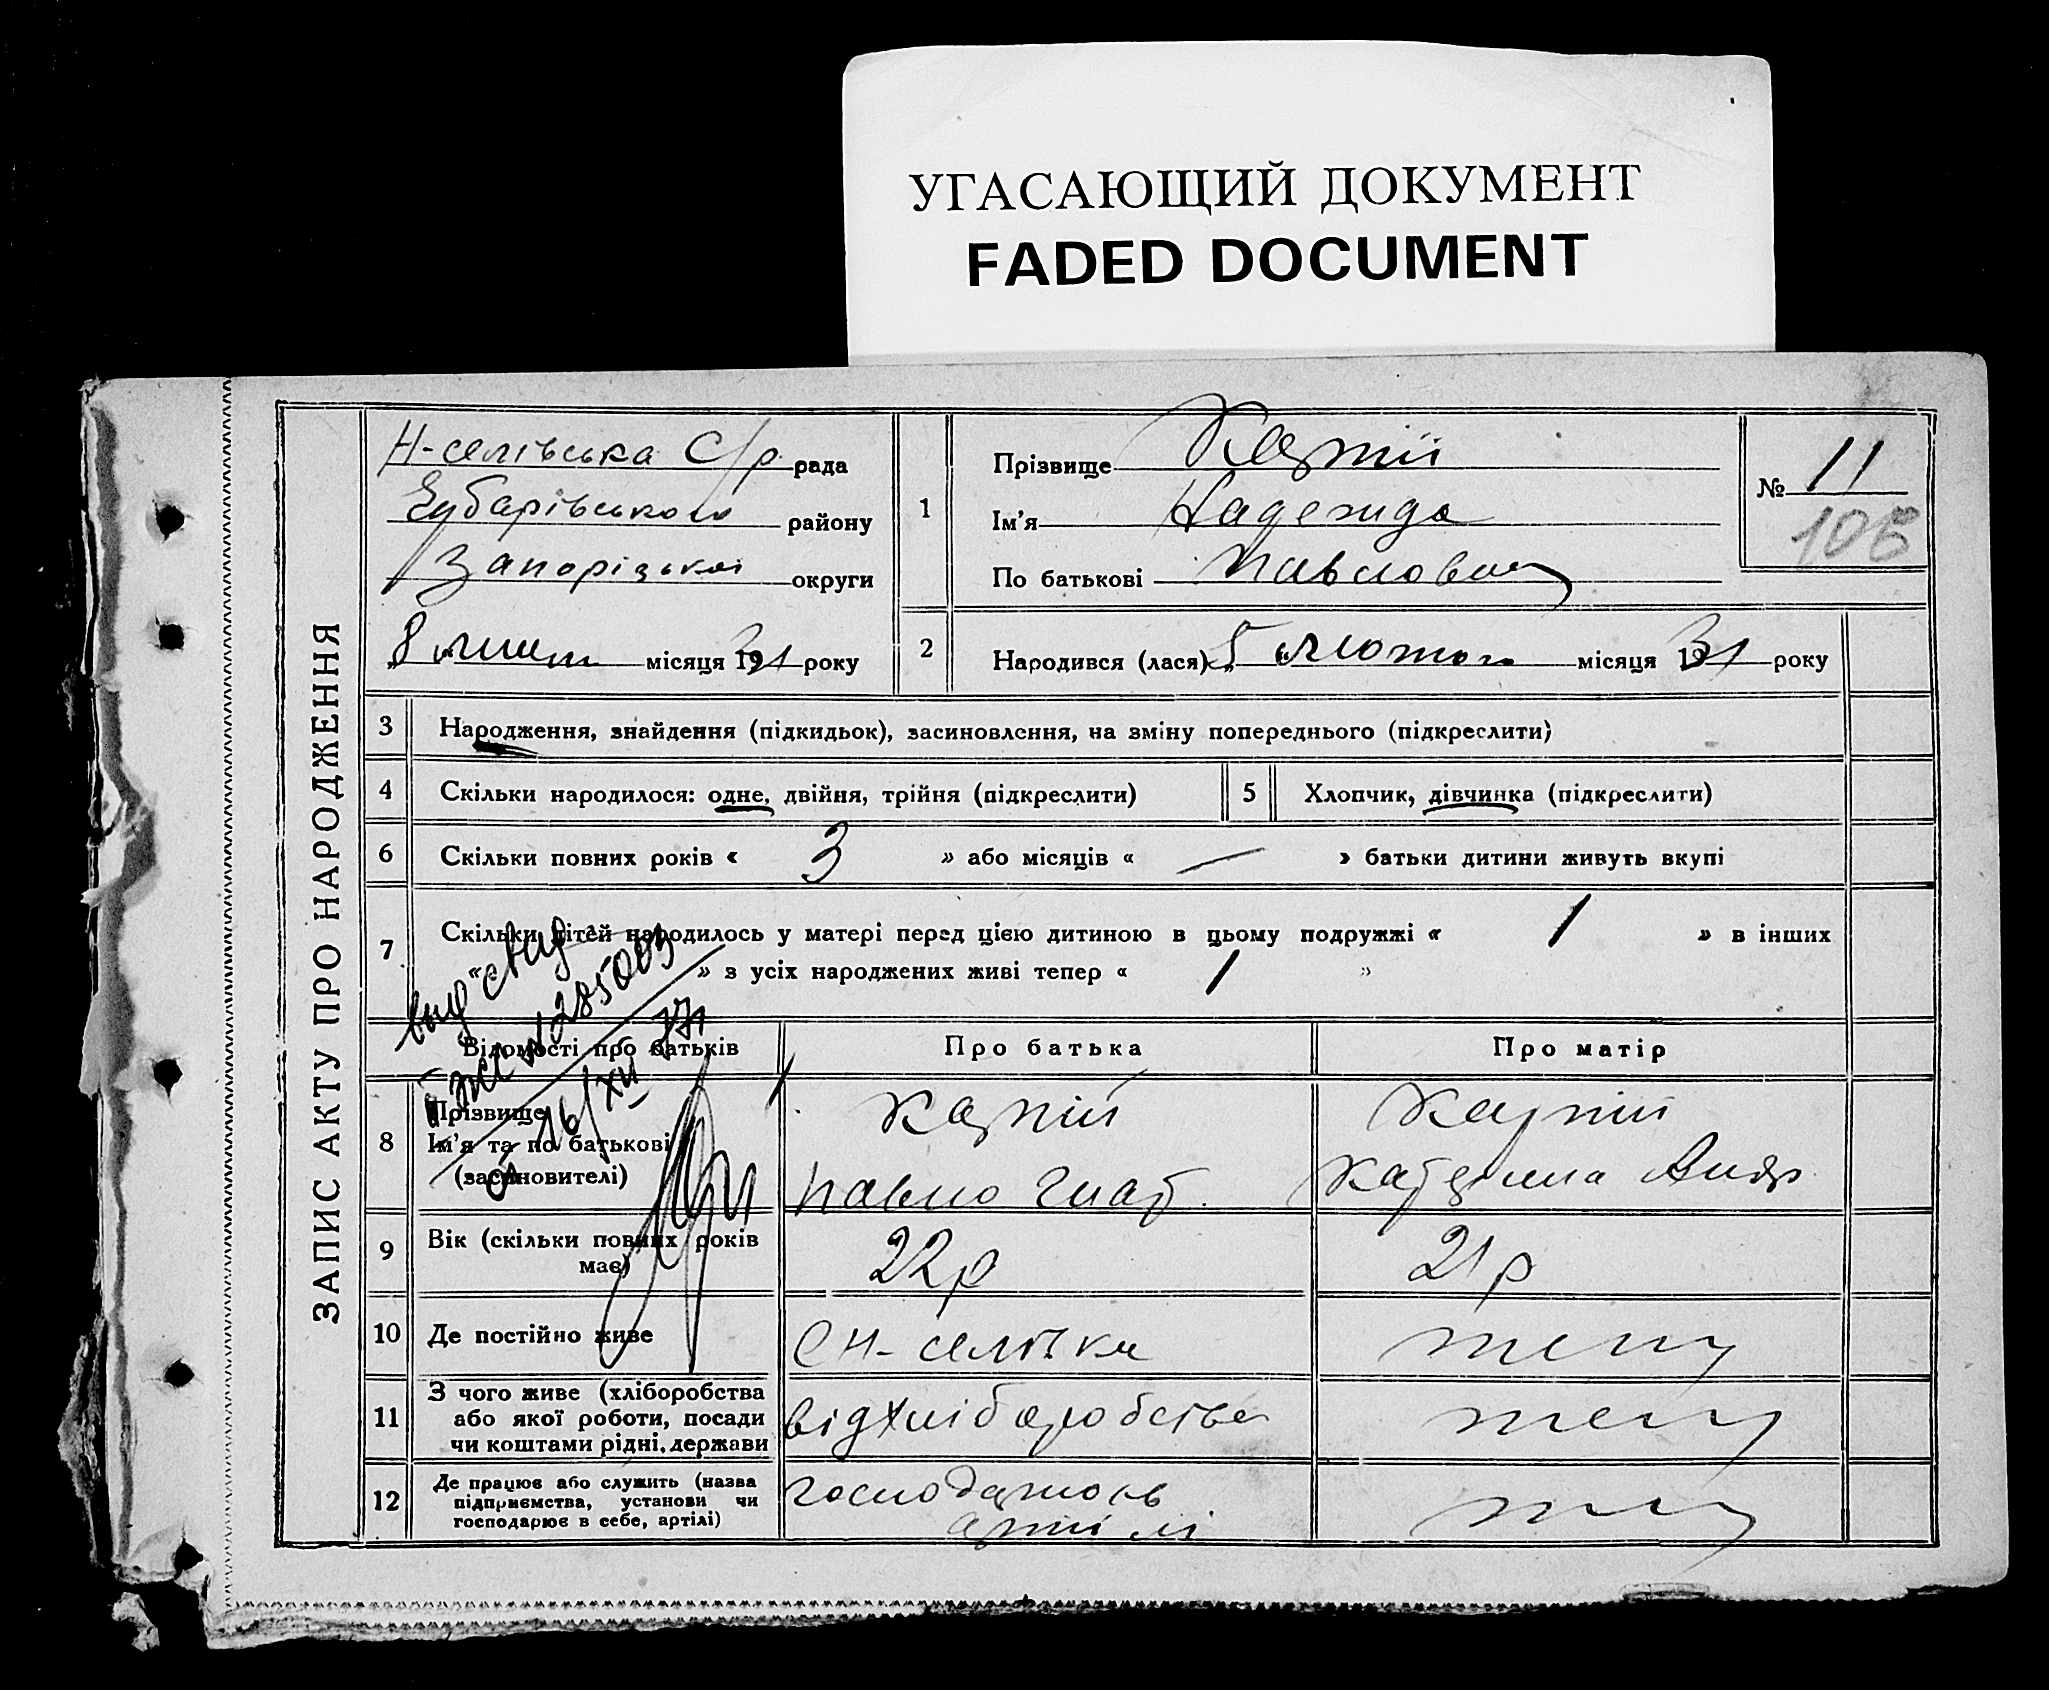 УГАСАЮЩИЙ ДОКУМЕНТ
FADED DOCUMENT
ЗАПИС АКТУ ПРО НАРОДЖЕННЯ
Н-селівська С/р рада
району
Запорізької округи
8 місяця 1931 року
1
Прізвище Карпій
Ім’я Надежда
По батькові Павловна
№ 11
106
2
Народився (лася) „5“ лютого місяця 1931 року
3 Народження, знайдення (підкидьок), засиновлення, на зміну попереднього (підкреслити)
4 Скільки народилося: одне, двійня, трійня (підкреслити)
5 Хлопчик, дівчинка (підкреслити)
6 Скільки повних років « 3 » або місяців « — » батьки дитини живуть вкупі
7 Скільки дітей народилось у матері перед цією дитиною в цьому подружжі « 1 » в інших
« » з усіх народжених живі тепер « 1 »
выд свид
№ 285003
от 16/XII 77
Відомості про батьків
Про батька
Про матір
8 Прізвище
Ім’я та по батькові
(засиновителі)
Карпій
Павло Гнат.
Карпій
Катерина Андр.
9 Вік (скільки повних років має)
22 р
21 р
10 Де постійно живе
С Н-селівка
11 З чого живе (хліборобства
або якої роботи, посади
чи коштами рідні, держави
від хліборобства
12 Де працює або служить (назва
підприємства, установи чи
господарює в себе, артілі)
артілі